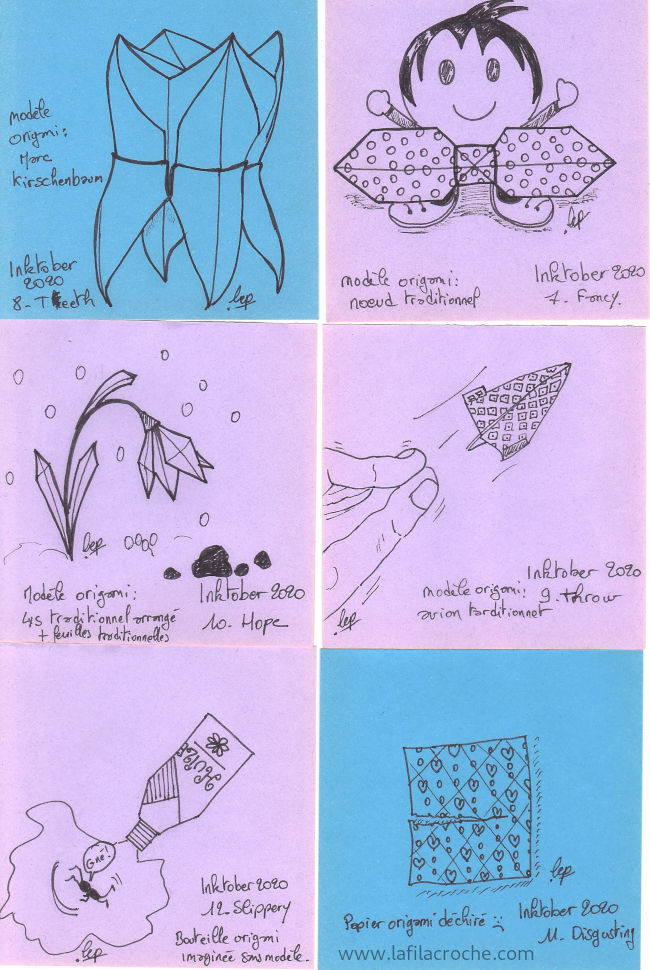 modèle
origami:
Marc
Kirschenbaum
Inktober
2020
8- Teeth
lep
lep
modèle origami:
noeud traditionnel
Inktober 2020
7- Fancy.
lep
Modèle origami:
lys traditionnel arrangé
+ feuilles traditionnelles
Inktober 2020
10- Hope
modèle origami:
avion tarditionnel
Inktober 2020
9. throw
lep
HUILE
Gné!
Inktober 2020
12-Slippery
Bouteille origami
imaginée sans modèle.
lep
lep
Papier origami déchiré :(
Inktober 2020
11- Disgusting
www.lafilacroche.com